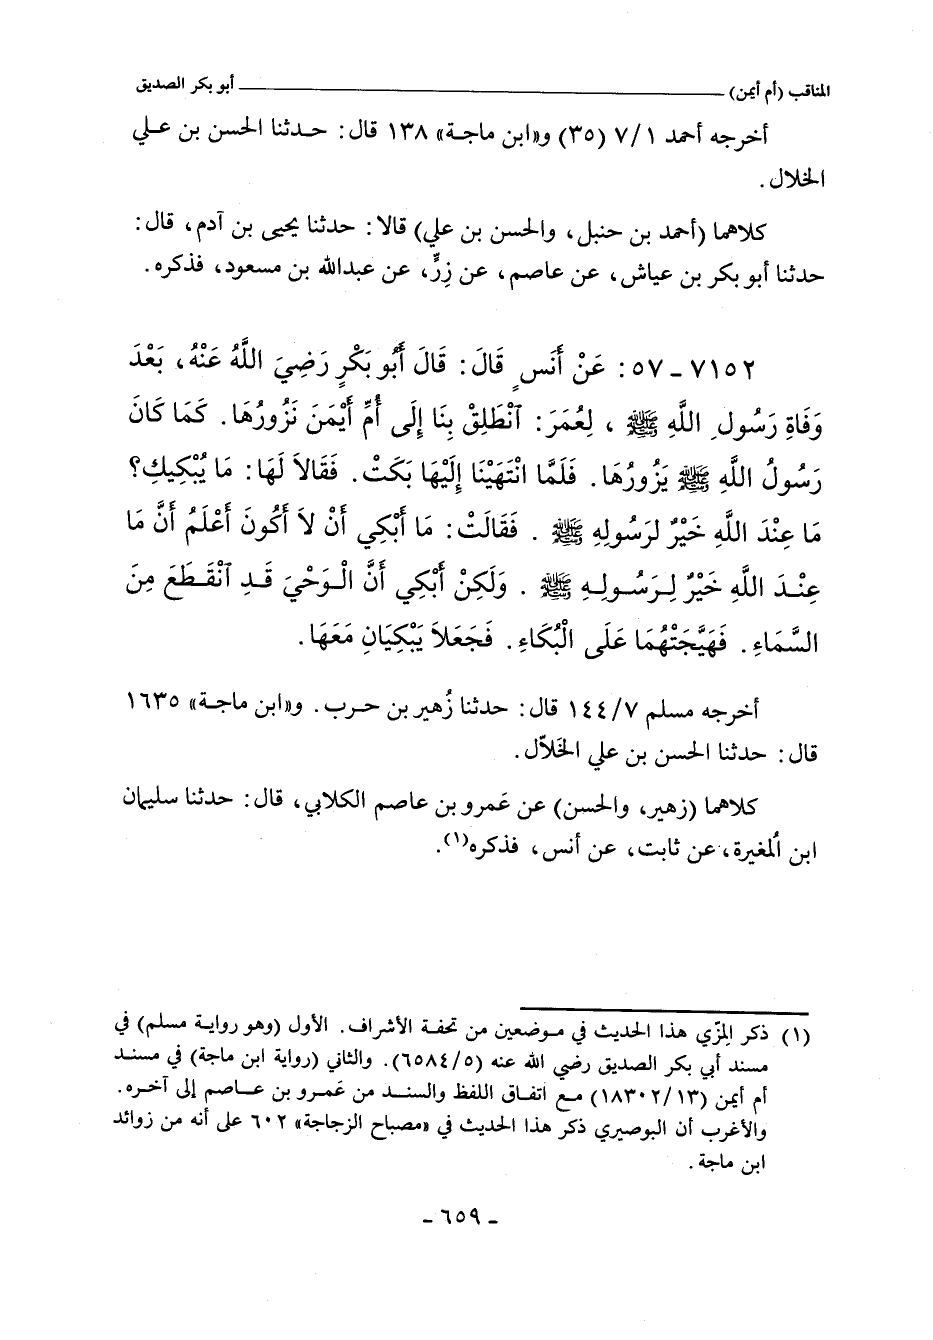 المناقب (أم أيمن) ــــــــــــ أبو بكر الصديق
أخرجه أحمد ٧/١ (٣٥) و«ابن ماجة» ١٣٨ قال: حدثنا الحسن بن علي
الخلال.
كلاهما (أحمد بن حنبل، والحسن بن علي) قالا: حدثنا يحيى بن آدم، قال:
حدثنا أبو بكر بن عياش، عن عاصم، عن زِرٍّ، عن عبدالله بن مسعود، فذكره.
٧١٥٢ ـ ٥٧: عَنْ أَنَسٍ قَالَ: قَالَ أَبُو بَكْرٍ رَضِيَ اللَّهُ عَنْهُ، بَعْدَ
وَفَاةِ رَسُولِ اللَّهِ ﷺ، لِعُمَرَ: ٱنْطَلِقْ بِنَا إِلَى أُمِّ أَيْمَنَ نَزُورُهَا. كَمَا كَانَ
رَسُولُ اللَّهِ ﷺ يَزُورُهَا. فَلَمَّا انْتَهَيْنَا إِلَيْهَا بَكَتْ. فَقَالاَ لَهَا: مَا يُبْكِيكِ؟
مَا عِنْدَ اللَّهِ خَيْرٌ لرَسُولِهِ ﷺ. فَقَالَتْ: مَا أَبْكِي أَنْ لاَ أَكُونَ أَعْلَمُ أَنَّ مَا
عِنْدَ اللَّهِ خَيْرٌ لِرَسُولِهِ ﷺ. وَلَكِنْ أَبْكِي أَنَّ الْوَحْيَ قَدِ ٱنْقَطَعَ مِنَ
السَّمَاءِ. فَهَيَّجَتْهُمَا عَلَى الْبُكَاءِ. فَجَعَلاَ يَبْكِيَانِ مَعَهَا.
أخرجه مسلم ١٤٤/٧ قال: حدثنا زُهير بن حرب. و«ابن ماجة» ١٦٣٥
قال: حدثنا الحسن بن علي الخَلاّل.
كلاهما (زهير، والحسن) عن عَمرو بن عاصم الكلابي، قال: حدثنا سليمان
ابن المُغيرة، عن ثابت، عن أنس، فذكره(١).
(١) ذكر المِزّي هذا الحديث في موضعين من تحفة الأشراف. الأول (وهو رواية مسلم) في
مسند أبي بكر الصديق رضي الله عنه (٦٥٨٤/٥). والثاني (رواية ابن ماجة) في مسند
أم أيمن (١٨٣٠٢/١٣) مع اتفاق اللفظ والسند من عَمرو بن عاصم إلى آخره.
والأغرب أن البوصيري ذكر هذا الحديث في «مصباح الزجاجة» ٦٠٢ على أنه من زوائد
ابن ماجة.
ـ ٦٥٩ ـ